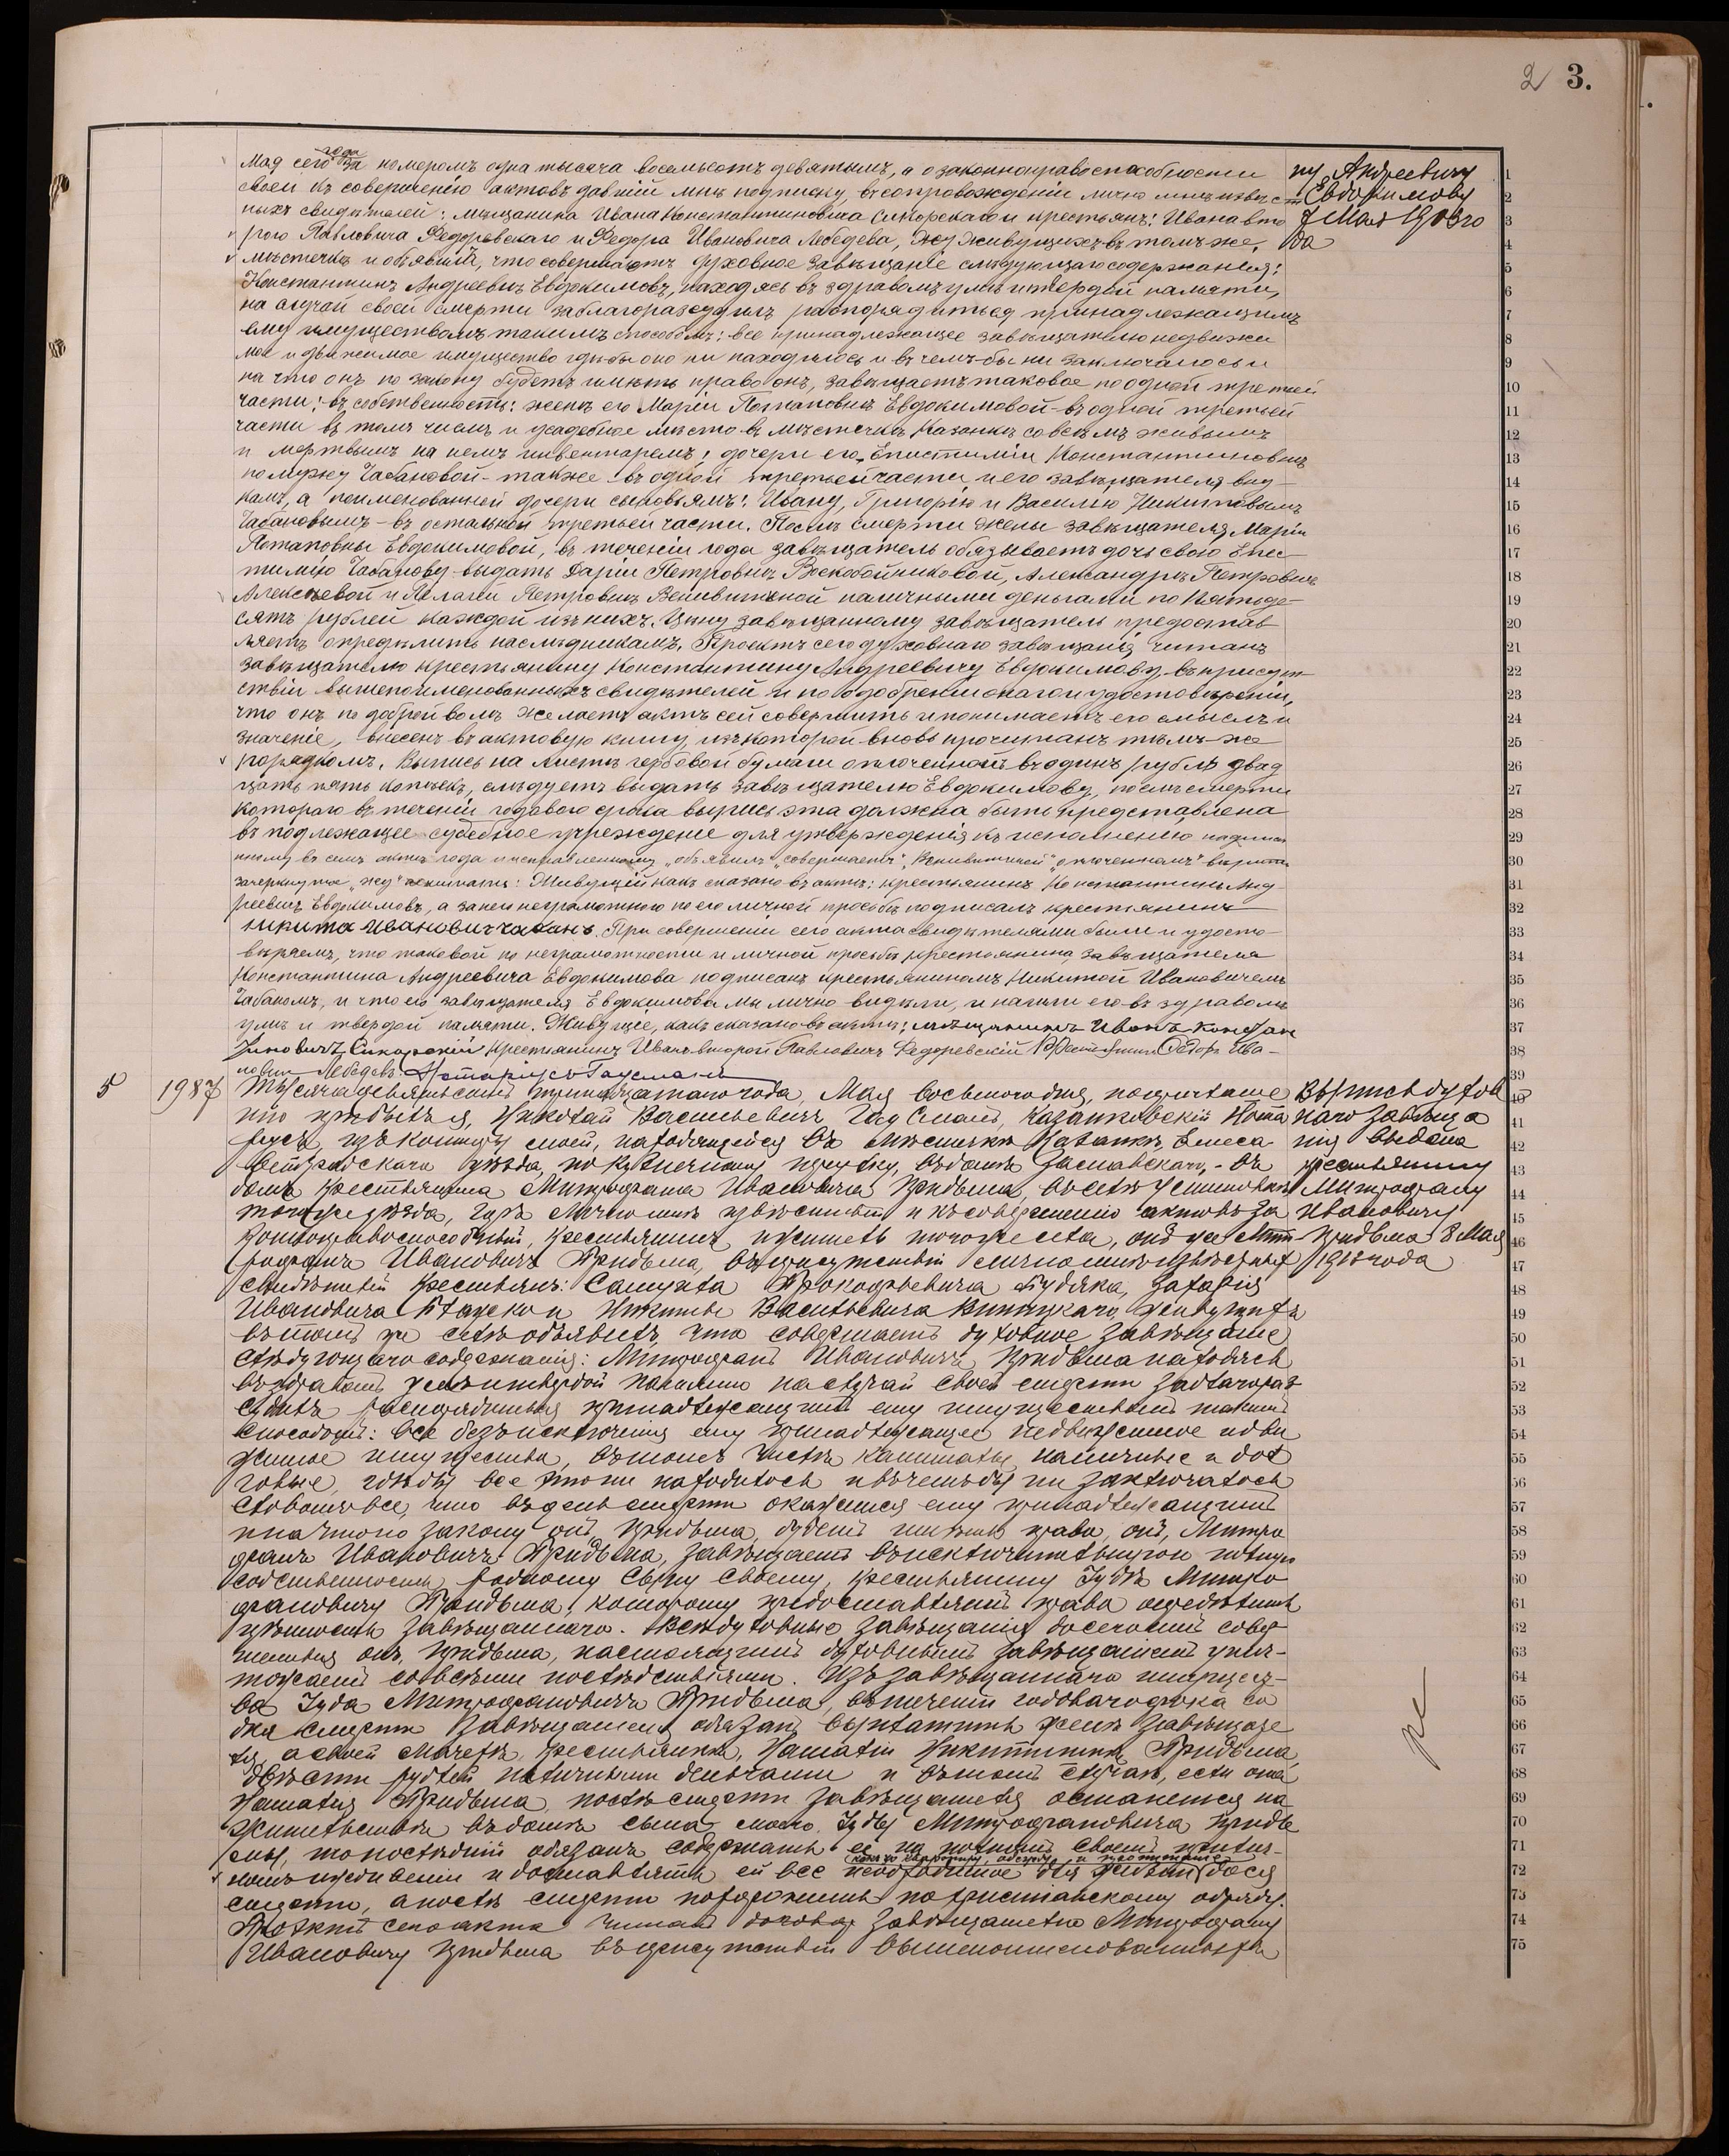 2 3.
Мая сего года за номеромъ одна тысяча восемьсотъ девятымъ, а о законноправоспособности
своей къ совершенію актовъ давшій мнѣ подписку, въ сопровожденіи лично мнѣ извѣст
ныхъ свидѣтелей: мѣщанина Ивана Константиновича Сикорскаго и крестьянъ: Ивана вто
рого Павловича Федоревскаго и Федора Ивановича Лебедева, жу живущихъ въ томъ же
мѣстечкѣ и объявилъ, что совершаетъ духовное завѣщаніе слѣдующаго содержанія:
Константинъ Андреевичъ Евдокимовъ, находясь въ здравомъ умѣ и твердой памяти,
на случай своей смерти заблагоразсудилъ распорядиться принадлежащимъ
ему имуществомъ такимъ способомъ: все принадлежащее завѣщателю недвижи
мое и движимое имущество гдѣ-бы оно ни находилось и въ чемъ-бы ни заключалось и
на что онъ по закону будетъ имѣть право онъ, завѣщаетъ таковое по одной третьей
части: въ собственность: женѣ его Маріи Потаповнѣ Евдокимовой - въ одной третьей
части въ томъ числѣ и усадебное мѣсто въ мѣстечкѣ Казанкѣ со всѣмъ живымъ
и мертвымъ на немъ инвентаремъ; дочери его Епистиміи Константиновнѣ
по мужу Чабановой - также въ одной третьей части, и его завѣщателя вну-
камъ, а поименованной дочери сыновьямъ: Ивану, Григорію и Василію Никитовымъ
Чабановымъ - въ остальной третьей части. Послѣ смерти жены завѣщателя, Маріи
Потаповны Евдокимовой, въ теченіи года завѣщатель обязываетъ дочь свою Епис-
тимію Чабанову выдать Даріи Петровнѣ Воскобойниковой, Александрѣ Петровнѣ
Алексѣевой и Пелагеи Петровнѣ наличными деньгами по пятьде-
сятъ рублей каждой изъ нихъ. Цѣну завѣщанному завѣщатель предостав
ляетъ опредѣлить наслѣдникамъ. Проектъ сего духовнаго завѣщанія читанъ
завѣщателю крестьянину Константину Андреевичу Евдокимову въ присут-
ствіи вышепоименованныхъ свидѣтелей и по одобреніи онаго и удостовѣреніи,
что онъ по доброй волѣ желаетъ актъ сей совершить и понимаетъ его смыслъ и
значеніе, внесенъ въ актовую книгу, изъ которой вновь прочитанъ тѣмъ-же
порядкомъ. Выпись на листѣ гербовой бумаги оплоченномъ въ одинъ рубль двад
цать пять копѣекъ, слѣдуетъ выдать завѣщателю Евдокимову, послѣ смерти
котораго въ теченіи годового срока выпись эта должна быть представлена
въ подлежащее судебное учрежденіе для утвержденія къ исполненію
въ семъ актѣ „года“ и исправленному „объявилъ“ „совершаетъ“ „оплоченномъ“ вѣрить
зачеркнутое „жу“ не читать: Живущій какъ сказано въ актѣ: крестьянинъ Константинъ Анд-
реевичъ Евдокимовъ, а за него неграмотнаго по его личной просьбѣ подписалъ крестьянинъ
Никита Ивановичъ Чабанъ. При совершеніи сего акта свидѣтелями были и удосто-
вѣряемъ, что таковой по неграмотности и личной просьбѣ крестьянина завѣщателя
Константина Андреевича Евдокимова подписанъ крестьяниномъ Никитой Ивановичемъ
Чабаномъ, и что его завѣщателя Евдокимова мы лично видѣли, и нашли его въ здравомъ
умѣ и твердой памяти. Живущіе, какъ сказано въ актѣ: мѣщанинъ Иванъ Констан
тиновичъ Сикорскій крестьянинъ Иванъ второй Павловичъ Федоревскій крестьянинъ Федоръ Ива-
новичъ Лебедевъ. Нотаріусъ Гаусманъ
ну Андреевичу
Евдокимову
7 Мая 1913 го
да
5 1987 Тысяча девятьсотъ тринадцатаго года, Мая восьмого дня,
Николай Васильевичъ Гаусманъ, Казанковскій Нота
ріусъ, въ контору мою, находящуюся въ мѣстечкѣ Казанкѣ, Елиса
ветградскаго уѣзда, по переулку, въ домѣ Заславскаго, - въ
домъ крестьянина Митрофана Ивановича Придьма, въ селѣ
того же уѣзда, гдѣ лично мнѣ извѣстный и къ совершенію актовъ за
конноправоспособный, крестьянинъ, житель того же села, Мит-
рофанъ Ивановичъ Придьма, въ присутствіи лично мнѣ извѣстныхъ
свидѣтелей крестьянъ: Самуила Прокофьевича Захарія
Ивановича и Никиты Васильевича живущихъ
въ томъ же селѣ объявилъ, что совершаетъ духовное завѣщаніе
слѣдующаго содержанія: Митрофанъ Ивановичъ Придьма находясь
въ здравомъ умѣ и твердой памяти на случай своей смерти заблагораз
судилъ распорядиться принадлежащимъ ему имуществомъ такимъ
способомъ: все безъ исключенія ему принадлежащее недвижимое и дви
жимое имущество, въ томъ числѣ капиталы, наличные и дол
говые, гдѣ-бы все это ни находилось и въ чемъ-бы ни заключалось
словомъ все, что въ день смерти окажется ему принадлежащимъ
и на что по закону онъ, Придьма, будетъ имѣть право, онъ, Митро
фанъ Ивановичъ Придьма, завѣщаетъ въ исключительную полную
собственность родному сыну своему, крестьянину Іудѣ Митро
фановичу Придьма, которому предоставляетъ право опредѣлить
цѣнность завѣщаннаго. Всѣ духовныя завѣщанія до сего имъ совер
шенныя онъ, Придьма, настоящимъ духовнымъ завѣщаніемъ унич-
тожаетъ со всѣми послѣдствіями. Изъ завѣщаннаго имущест-
ва Іуда Митрофановичъ Придьма въ теченіи годового срока со
дня смерти завѣщателя обязанъ выплатить женѣ завѣщате
ля, а своей мачехѣ, крестьянкѣ, Наталіи Никитишнѣ Придьма
двѣсти рублей наличными деньгами и въ томъ случаѣ, если она
Наталія Придьма, послѣ смерти завѣщателя останется на
жительствѣ въ домѣ сына моего Іуды Митрофановича Придь
мы, то послѣдній обязанъ содержать ее на полномъ своемъ
иждивеніи и доставлять ей все необходимое для жизни до ея
какъ то квартиру, одежду и пропитаніе
смерти, а послѣ смерти похоронить по христіанскому обряду.
Проектъ сего акта читанъ завѣщателю Митрофану
Ивановичу Придьма въ присутствіи вышепоименованныхъ
Выпись духов
наго завѣща
нія выдана
крестьянину
Митрофану
Ивановичу
Придьма 8 Мая
1913 года
1
2
3
4
5
6
7
8
9
10
11
12
13
14
15
16
17
18
19
20
21
22
23
24
25
26
27
28
29
30
31
32
33
34
35
36
37
38
39
40
41
42
43
44
45
46
47
48
49
50
51
52
53
54
55
56
57
58
59
60
61
62
63
64
65
66
67
68
69
70
71
72
73
74
75